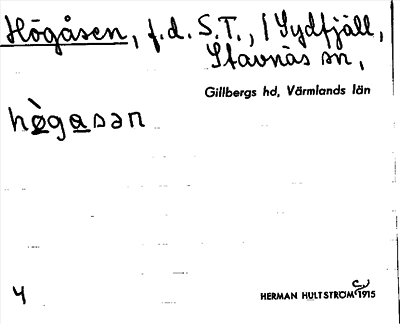 Högåsen, f.d. S.T., / Sydfjäll,
Stavnäs sn,
Gillbergs hd, Värmlands län
hø̀gasan
4
HERMAN HULTSTRÖM 1915